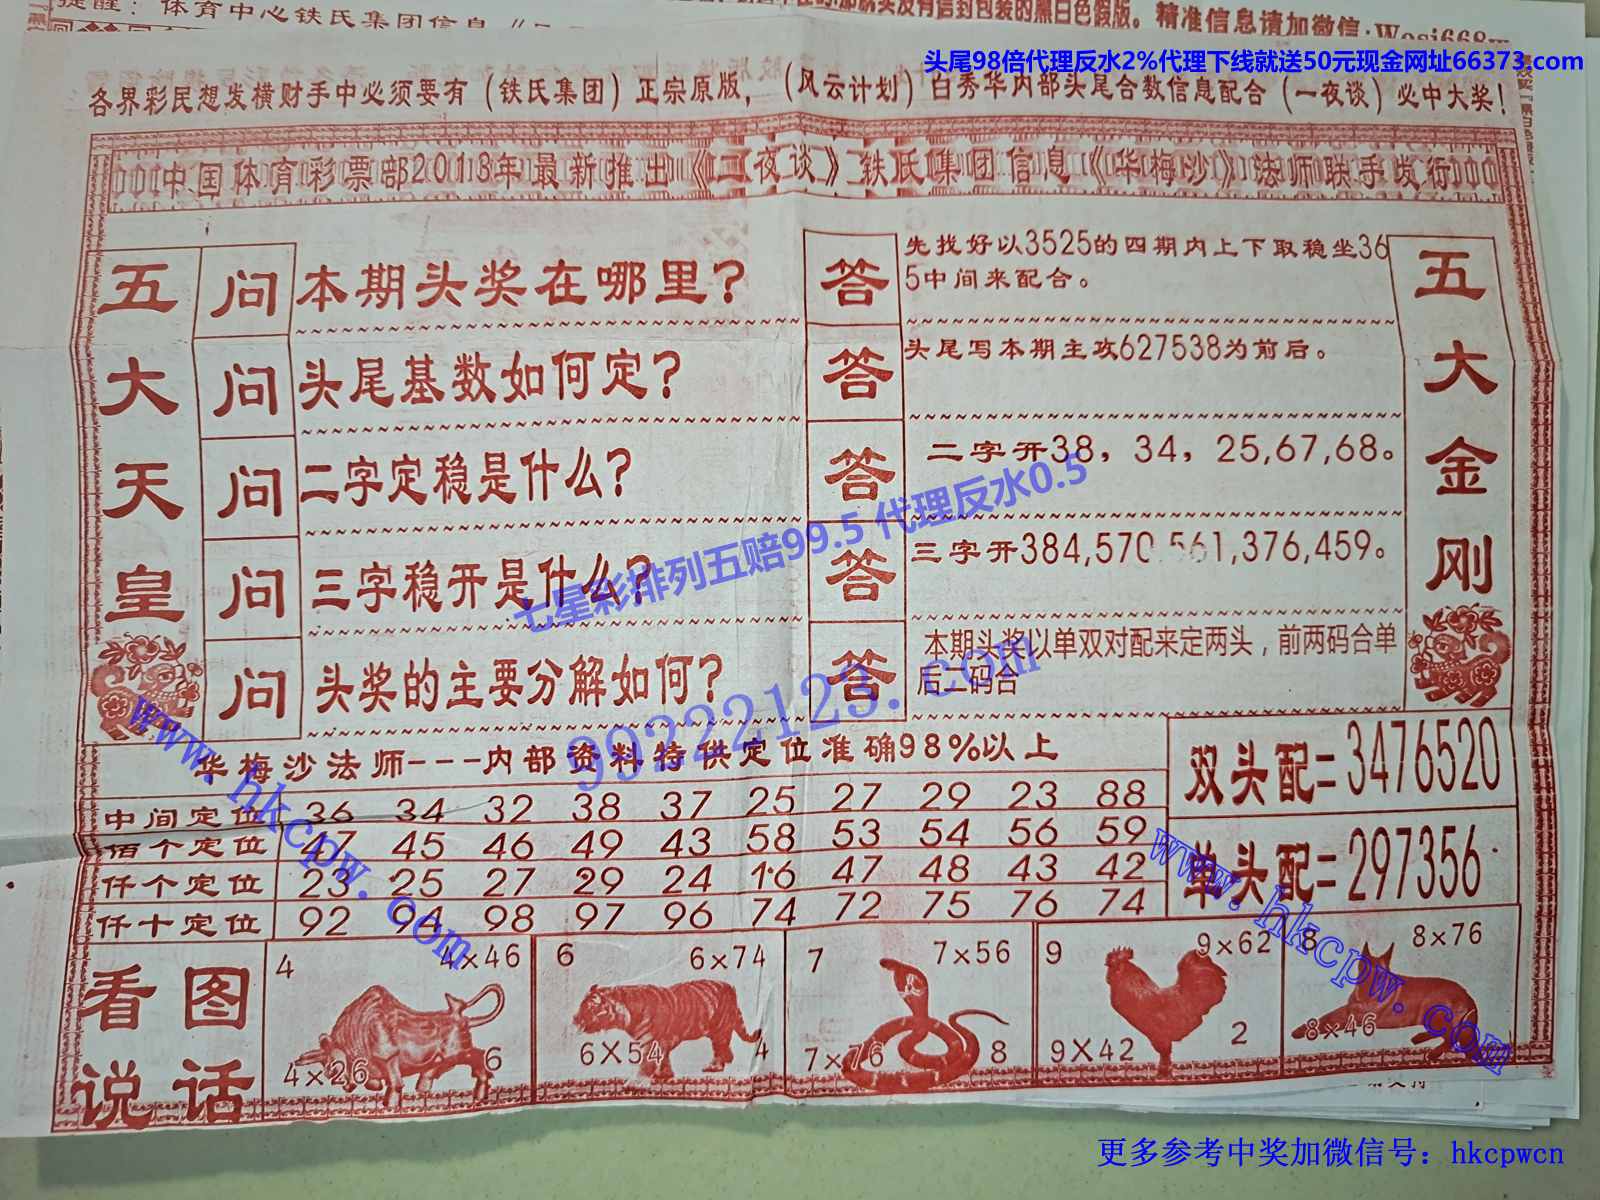 提醒：体育中心铁氏集团信息
精准信息请加微信：Wosi668w
头尾98倍代理反水2%代理下线就送50元现金网址66373.com
各界彩民想发横财手中必须要有（铁氏集团）正宗原版，（风云计划）白秀华内部头尾合数信息配合（一夜谈）必中大奖！
中国体育彩票部2013年最新推出《二夜谈》铁氏集团信息《华梅沙》法师联手发行
五大天皇
问 本期头奖在哪里？
答 先找好以3525的四期内上下取稳坐36
5中间来配合。
问 头尾基数如何定？
答 头尾写本期主攻627538为前后。
问 二字定稳是什么？
答 二字开38，34，25,67,68。
问 三字稳开是什么？
答 三字开384,570,561,376,459。
问 头奖的主要分解如何？
答 本期头奖以单双对配来定两头，前两码合单
后二码合
五大金刚
七星彩排列五赔99.5 代理反水0.5
99222123.com
www.hkcpw.com
www.hkcpw.com
华梅沙法师---内部资料特供定位准确98%以上
中间定位 36 34 32 38 37 25 27 29 23 88
佰个定位 47 45 46 49 43 58 53 54 56 59
仟个定位 23 25 27 29 24 16 47 48 43 42
仟十定位 92 94 98 97 96 74 72 75 76 74
双头配=3476520
单头配=297356
看图
说话
4 4×46
4×26 6
6 6×74
6×54 4
7 7×56
7×76 8
9 9×62
9×42 2
8 8×76
8×46
更多参考中奖加微信号：hkcpwcn